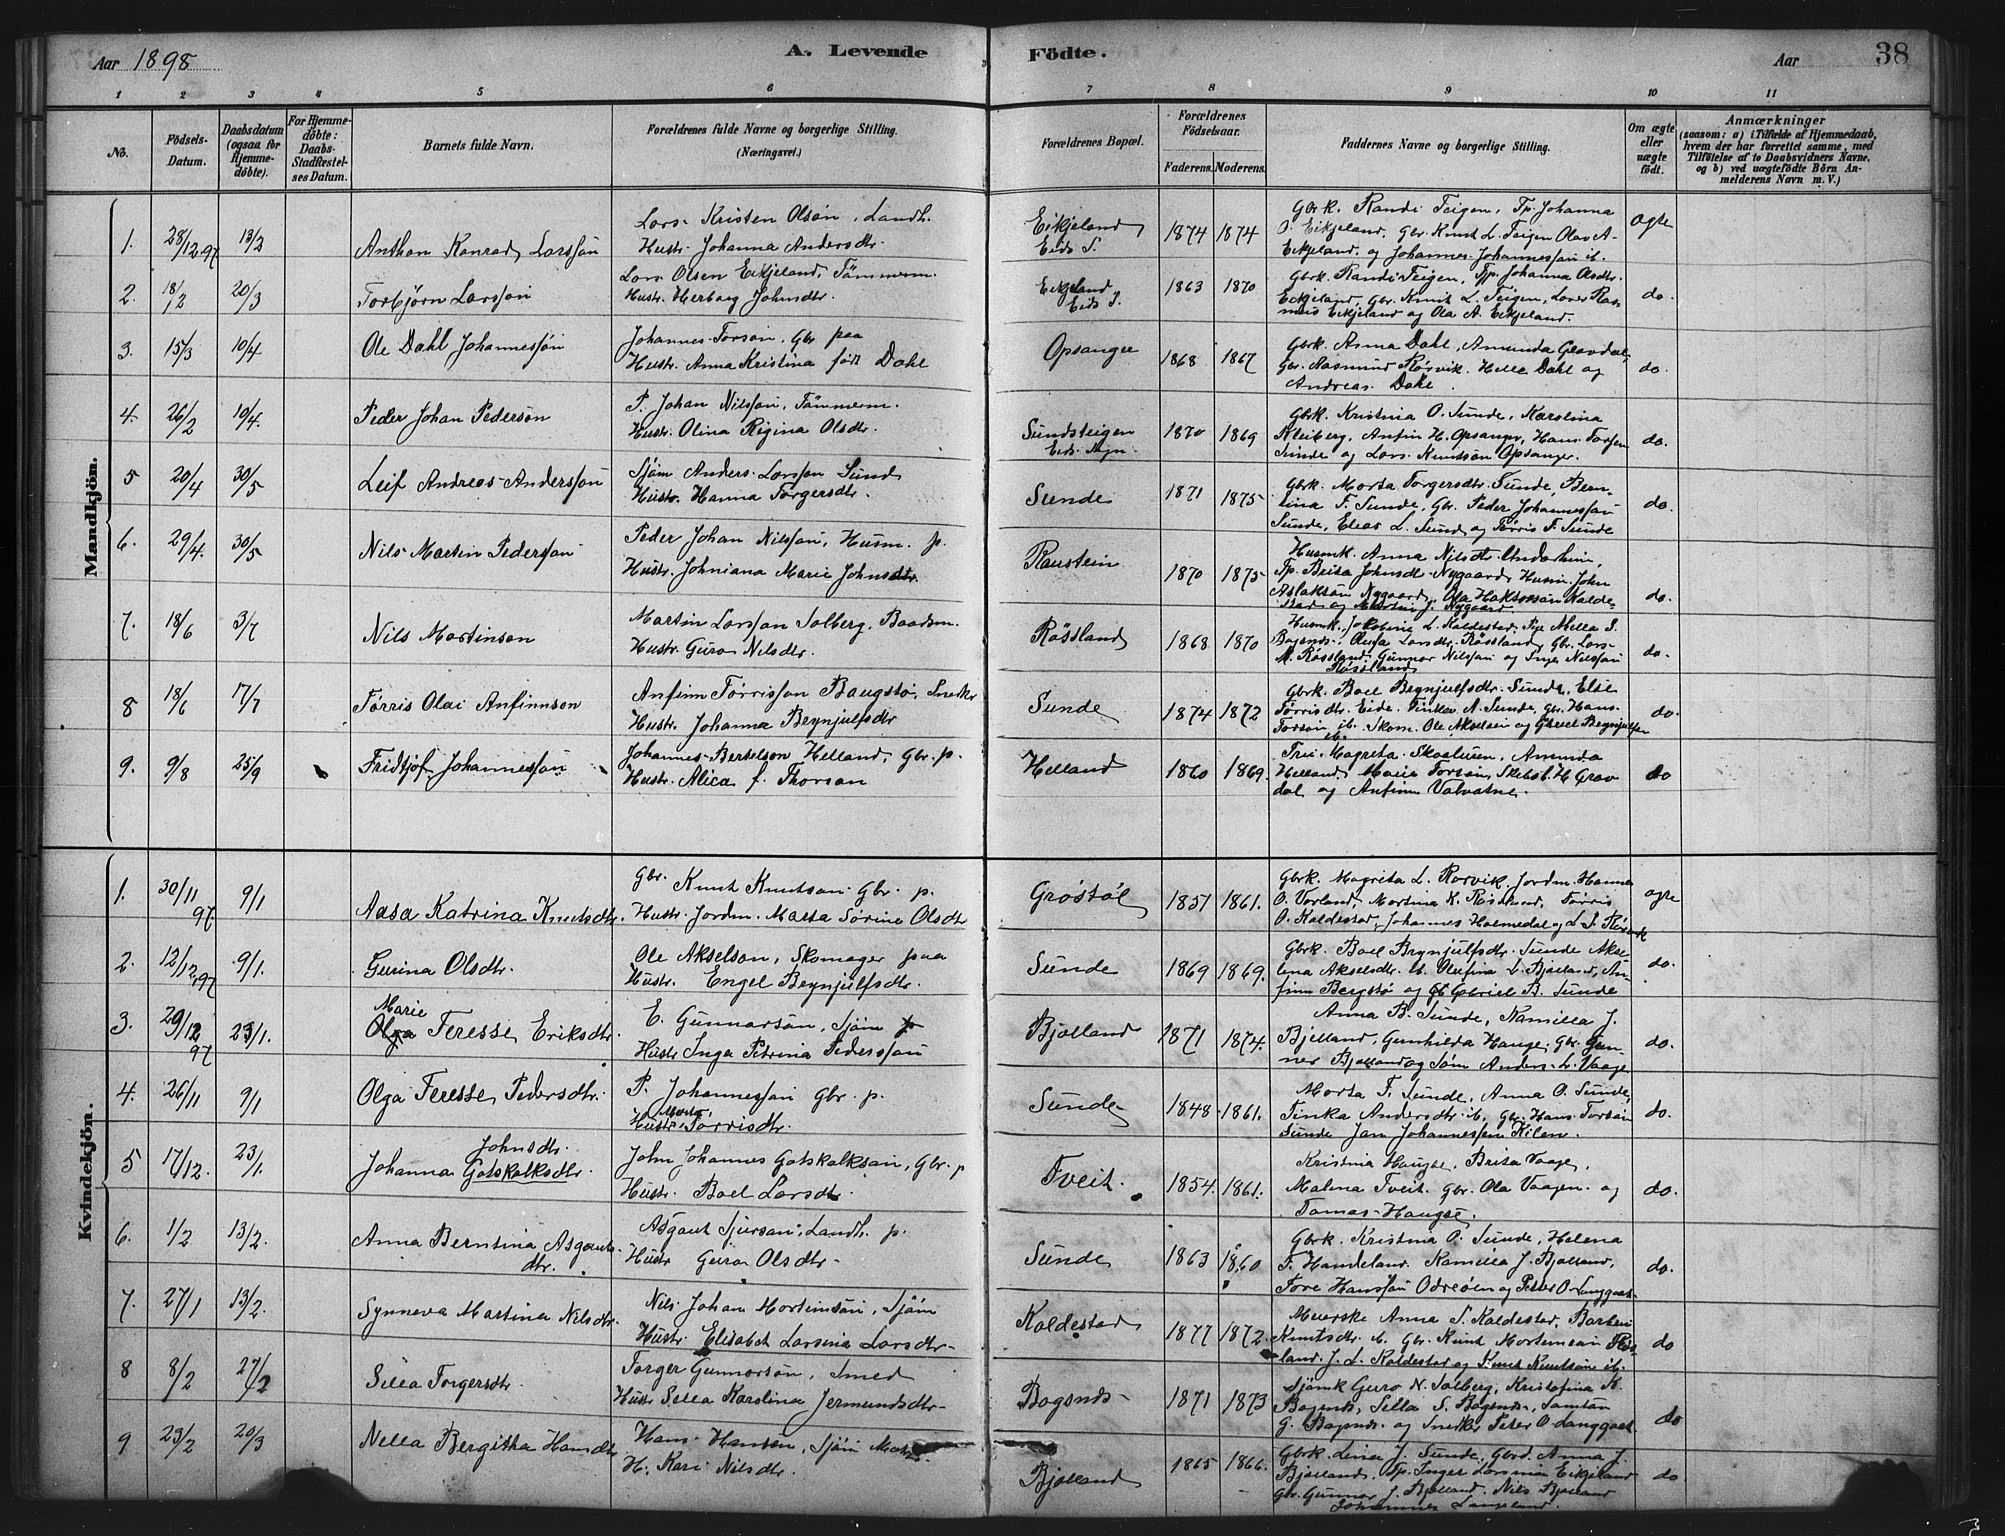 Aar 1898
A. Levende Födte.
Aar
38
1 2 3 4 5 6 7 8 9 10 11
No.
Födsels-Datum.
Daabsdatum (ogsaa for Hjemme-döbte).
For Hjemme-döbte: Daabs-Stadfæstel-ses Datum.
Barnets fulde Navn.
Forældrenes fulde Navne og borgerlige Stilling.
(Næringsvei.)
Forældrenes Bopæl.
Forældrenes Födselsaar.
Faderens. Moderens.
Faddernes Navne og borgerlige Stilling.
Om ægte eller uægte födt.
Anmærkninger
(saasom: a) i Tilfælde af Hjemmedaab,
hvem der har forrettet samme, med
Tilföielse af to Daabsvidners Navne,
og b) ved uægtefödte Börn An-
melderens Navn m. V.)
Mandkjön.
1. 28/12 97 13/2 Anthon Konrad Larssøn
Lars Kristen Olsøn, Landh.
Hustr. Johanna Andersdtr.
Eikjeland
Eids S.
1874 1874
Gbrk. Randi Teigen, Tp. Johanna
O. Eikjeland, Gbr. Knut L. Teigen Olav A.
Eikjeland og Johannes Johannessøn ib.
ægte
2. 18/2 20/3 Torbjørn Larsson
Lars Olsen Eikjeland, Tømmerm.
Hustr. Herborg Johnsdtr.
Eikjeland
Eids S.
1863 1870
Gbrk. Randi Teigen, Tp. Johanna Olsdtr.
Eikjeland, Gbr. Knut L. Teigen, Ras-
mus Eikjeland og Ola A. Eikjeland.
do.
3. 15/3 10/4 Ole Dahl Johannessøn
Johannes Torsøn, Gbr paa
Hustr. Anna Kristina født Dahl
Opsanger
1868 1867
Gbrk. Anna Dahl, Amunda Gravdal,
Gbr. Rasmund Rørvik, Helle Dahl og
Andreas Dahl.
do.
4. 26/2 10/4. Peder Johan Pedersøn
P. Johan Nilssøn, Tømmerm.
Hustr. Olina Regina Olsdtr.
Sundsteigen
Eids Sogn.
1870 1869
Gbrk. Kristina O. Sunde, Karolina
Kleiberg, Anfin H. Opsanger, Hans Torsen
Sunde og Lars Knutsøn Opsanger.
do.
5 20/4 30/5 Leif Andreas Anderssøn
Sjøm Anders Larsson Sund
Hustr. Hanna Torgersdtr.
Sunde
1871 1875
Gbrk. Marta Torgersdtr. Sunde, Bern-
tina T. Sunde, Gbr. Peder Johannessøn
Sunde, Elias L. Sund og Tørris T. Sunde
do.
6. 29/4. 30/5 Nils Martin Pederssøn
Peder Johan Nilssøn, Husm. p.
Hustr. Johniana Marie Johnsdtr.
Raustein
1870 1875
Husmk. Anna Nilsdtr. Undarheim,
Tp. Brita Johnsdtr. Nygaard, Husm. John
Aslaksøn Nygaard, Ola Haktorsøn Kalde-
stad og Martin J. Nygaard
do.
7. 18/6 3/7 Nils Martinson
Martin Larsson Solberg, Baadsm.
Hustr. Guro Nilsdtr.
Røssland
1868 1870
Husmk. Jakobine L. Kaldestad, Pge Mella S.
Bogsnes, Olufa Larsdtr. Røssland, Gbr. Lars
M. Røssland, Gunnar Nilssøn og Inge Nilssøn
Røssland
do.
8 18/6 17/7 Tørris Olai Anfinnson
Anfinn Tørrisson Baugstø, Snekr
Hustr. Johanna Brynjulfsdtr
Sunde
1874 1872
Gbrk. Boel Brynjulfsdtr. Sunde, Elsie
Tørrisdtr. Eide, Tinka A. Sunde, Gbr. Hans
Torsøn ib. Skom. Ole Akselsen og Gabriel Brynjulfsen
ib.
do.
9. 9/8 25/9 Fridtjof Johannessøn
Johannes Bertelson Helland, Gbr. p.
Hustr. Alica f. Thorson
Helland
1860 1869.
Fru Magreta Skaaluren, Amunda
Helland, Marie Torsøn, Skibsb. H. Grav
dal og Anfinn Valvatne.
do
Kvindekjön.
1. 30/11 97 9/1 Aasa Katrina Knutsdtr.
Gbr. Knut Knutson Gbr. p.
Hustr. Jordm. Marta Sørine Olsdtr
Grøstøl
1857 1861.
Gbrk. Magreta L. Rørvik, Jordm. Hanna
O. Vorland, Martina K. Røssland, Tørris
O. Kaldestad, Johannes Holmedal og L. S. Rørvik
ægte
2. 12/12 97 9/1. Gurina Olsdtr.
Ole Akselson, Skomager paa
Hustr. Engel Brynjulfsdtr.
Sunde
1869 1869.
Gbrk. Boel Brynjulfsdtr. Sunde Akse-
lena Akselsdtr. ib. Olufina L. Bjølland, An-
finn Bergstø og Gabriel B. Sunde
do.
3. 29/12 97 23/1. Marie
Olga Teresse Eriksdtr.
E. Gunnarsøn, Sjøm p
Hustr Inga Petrina Pederssøn
Bjølland
1871 1874.
Anna B. Sunde, Kamilla J.
Bjelland, Gunhilda Hauge, Gbr. Gun-
nar Bjølland og Sjøm Anders L. Vaage
do.
4. 26/11 9/1 Olga Teresse Pedersdtr.
P. Johannessøn Gbr. p.
Marta
Hustr. Torrisdtr.
Sunde
1848 1861.
Marta T. Sunde, Anna O. Sunde,
Tinka Andersdtr. ib. Gbr. Hans Torsøn
Sunde Jan Johannessen Kilen.
do.
5 17/12. 23/1. Johnsdtr.
Johanna Gotskalksdtr.
John Johannes Gotskalksøn, Gbr. p
Hustr. Boel Larsdtr.
Tveit.
1854. 1861.
Kristina Haugse, Brita Vaage,
Malina Tveit. Gbr. Ola Vaagen og
Tomas Haugse.
do.
6. 1/2 13/2. Anna Berntina Asgauts-
dtr.
Asgaut Sjursøn, Landh. p.
Hustr Guro Olsdtr.
Sunde
1863 1860
Gbrk. Kristina O. Sunde, Helena
T. Handeland, Kamilla J. Bjølland,
Tore Hanssøn Odreøen og Peter O. Langgaat
do.
7. 27/1 13/2. Synneva Martina Nilsdtr.
Nils Johan Mortensøn, Sjøm
Hustr Elisabet Larsina Larsdtr.
Kaldestad
1877 1872.
Meierske Anna S. Kaldestad, Barbru
Knutsdtr. ib. Gbr. Knut Mortensøn Røs-
land. J. L. Kaldestad og Knut Knutsøn ib.
do
8 8/2 27/2 Sella Torgersdtr.
Torger Gunnarsøn, Smed
Hustr Sella Karolina Jermundsdtr.
Bogsnes
1871 1873
Sjømk Guro N. Solberg, Kristofina K.
Bogsnes, Sella S. Bogsnes, Samson
G. Bogsnes og Snedker Peter O. Langgaat
do
9 23/2 20/3 Nella Bergitha Hansdtr
Hans Hansen, Sjøm
H. Kari Nilsdtr.
Bjølland
1865 1866.
Gbrk. Lina J. Sunde, Gbrd. Anna J.
Bjølland, Tp. Inger Larsina Eikjeland
Gbr. Gunnar J. Bjølland, Nils Bjølland
Johannes Langeland.
do